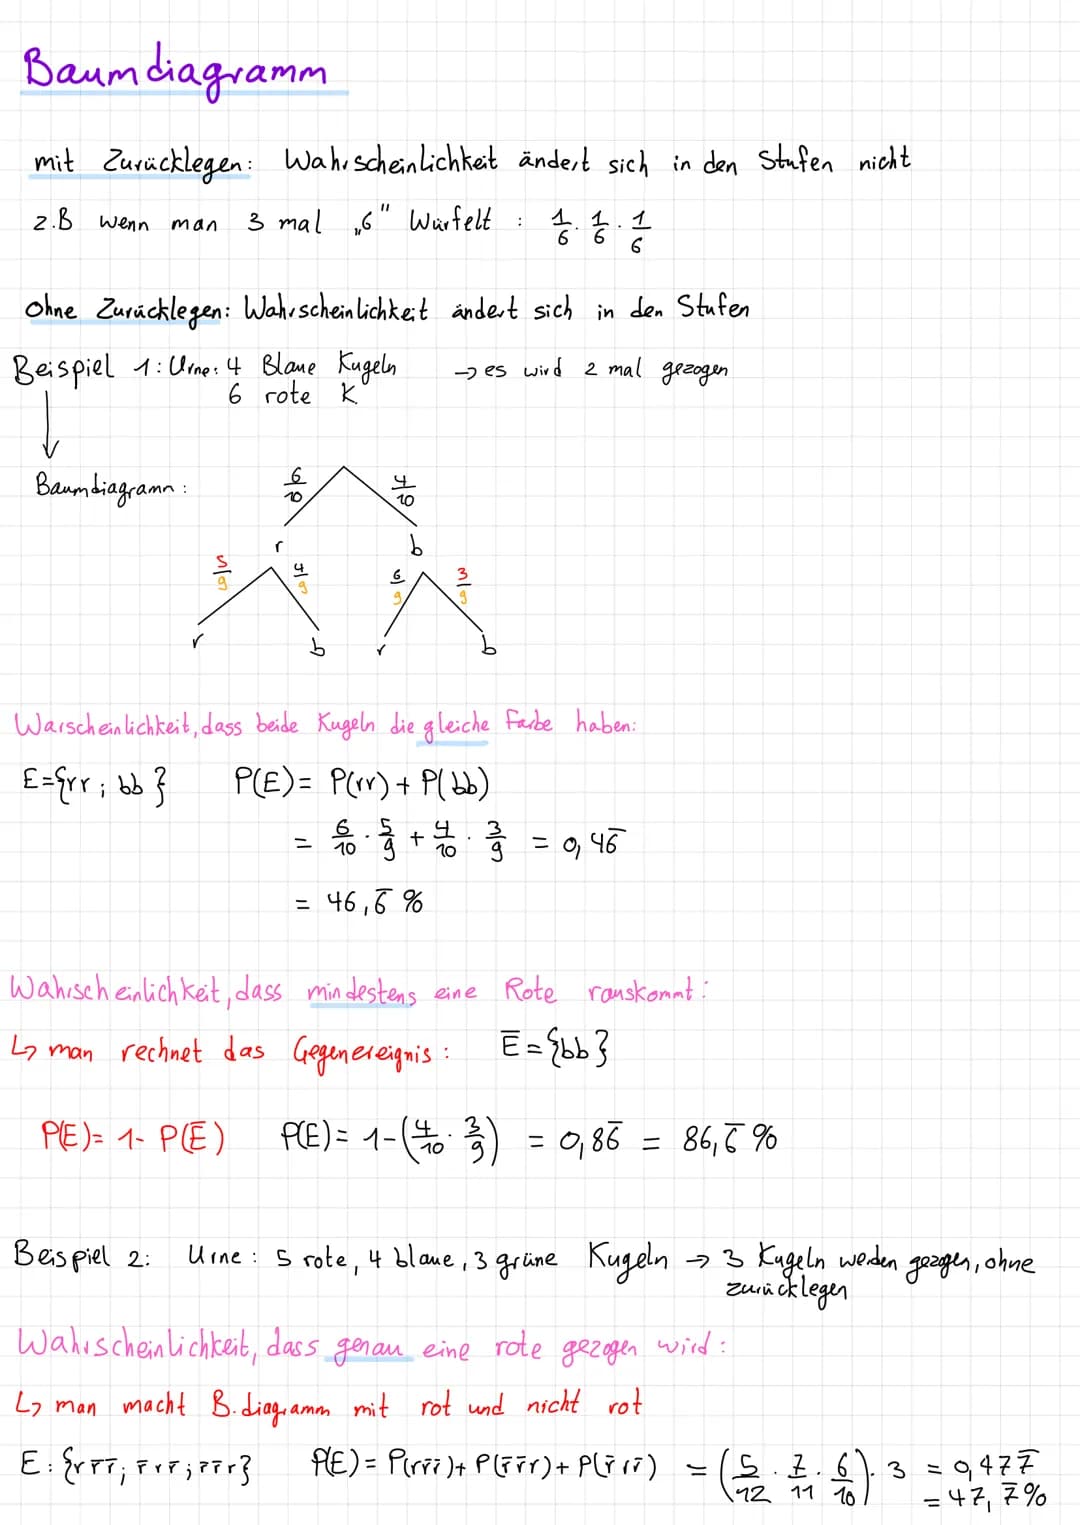 Baumdiagramm
mit Zurücklegen: Wahrscheinlichkeit ändert sich in den Stufen nicht
z.B wenn man 3 mal „6" Würfelt : 1/6 · 1/6 · 1/6
Ohne Zurücklegen: Wahrscheinlichkeit ändert sich in den Stufen
Beispiel 1: Urne: 4 Blaue Kugeln → es wird 2 mal gezogen
6 rote K.
Baumdiagramm :
6/10 4/10
r b
5/9 4/9 6/9 3/9
r b r b
Warscheinlichkeit, dass beide Kugeln die gleiche Farbe haben:
E={rr ; bb} P(E) = P(rr) + P(bb)
= 6/10 · 5/9 + 4/10 · 3/9 = 0,46̅
= 46,6̅ %
Wahrscheinlichkeit, dass mindestens eine Rote rauskommt :
↳ man rechnet das Gegenereignis : E̅ = {bb}
P(E) = 1 - P(E̅) P(E) = 1-(4/10 · 3/9) = 0,86̅ = 86,6̅ %
Beispiel 2: Urne : 5 rote, 4 blaue, 3 grüne Kugeln → 3 Kugeln werden gezogen, ohne
zurücklegen
Wahrscheinlichkeit, dass genau eine rote gezogen wird :
↳ man macht B.diagramm mit rot und nicht rot
E : {rr̅r̅; r̅rr̅; r̅r̅r} P(E) = P(rr̅r̅) + P(r̅r̅r) + P(r̅rr̅) = (5/12 · 7/11 · 6/10) · 3 = 0,477̅
= 47,7̅%